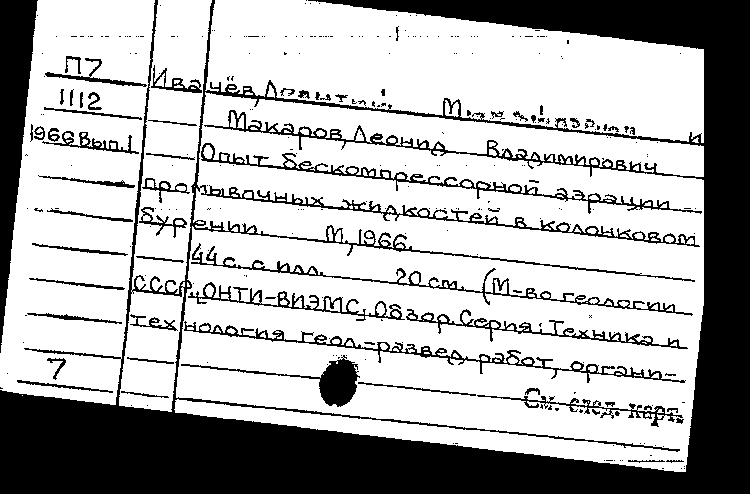 П7
1112
1966 Вып.1
Ивачёв, и
Макаров, Леонид Владимирович
Опыт бескомпрессорной аэрации
промывочных жидкостей в колонковом
бурении. М., 1966.
44 с. с илл. 20 см. (М-во геологии
СССР. ОНТИ-ВИЭМС. Обзор. Серия: Техника и
технология геол.-развед. работ, органи-
7
См. след. карт.